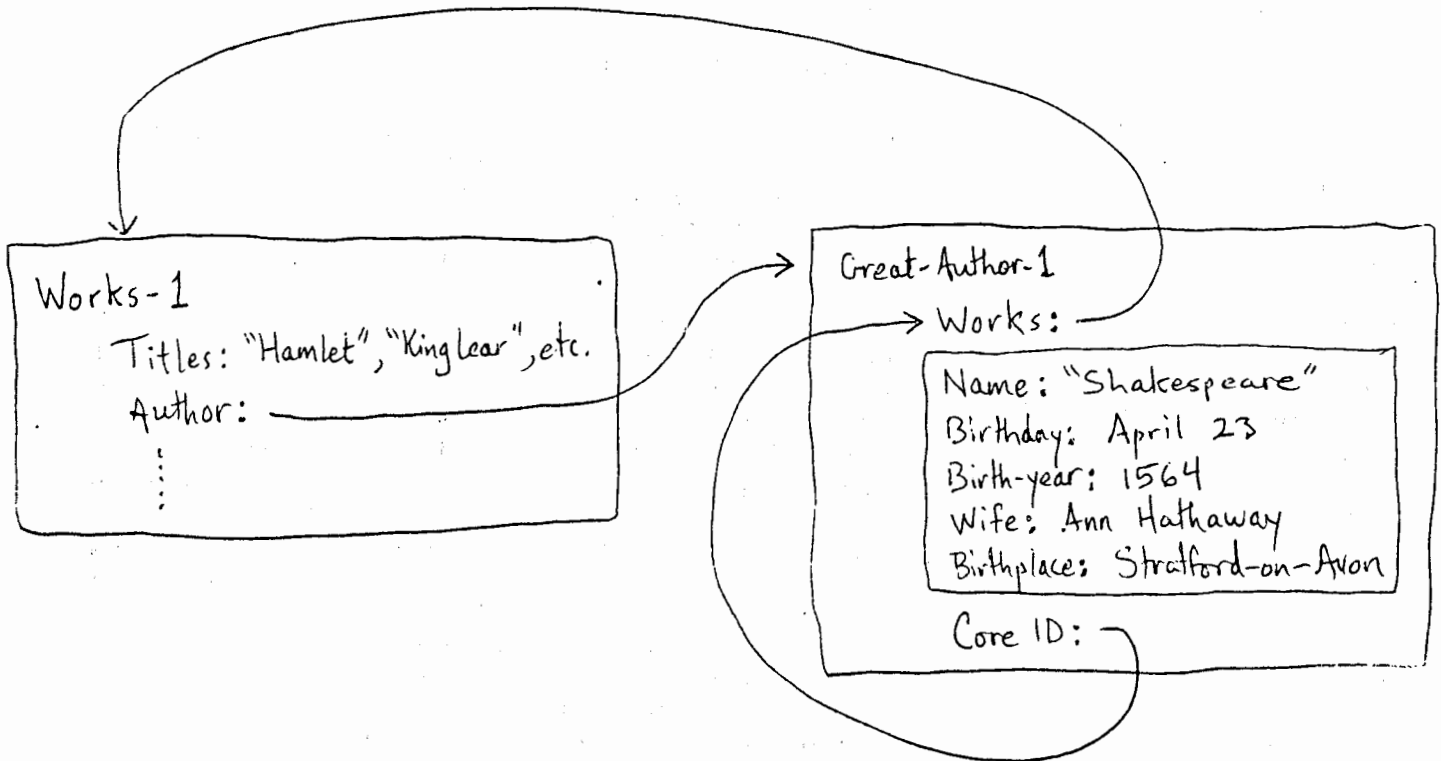 Works-1
Titles: "Hamlet", "King Lear", etc.
Author:
Great-Author-1
Works:
Name: "Shakespeare"
Birthday: April 23
Birth-year: 1564
Wife: Ann Hathaway
Birthplace: Stratford-on-Avon
Core ID: